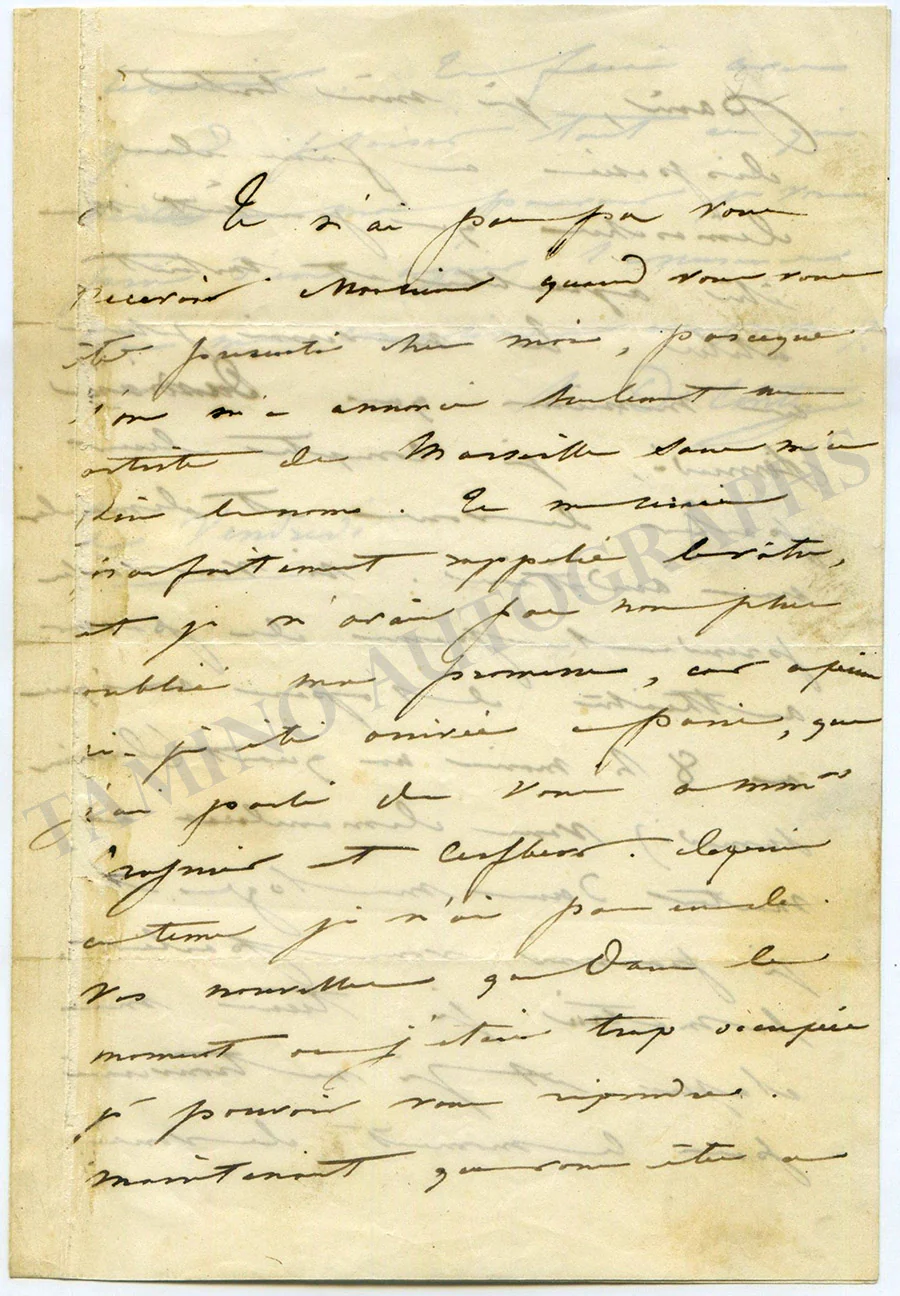 Je n'ai pas pu vous
recevoir Monsieur quand vous vous
ete presenté chez moi, parceque
l'on m'a annoncé seulement un
artiste de Marseille sans m'en
dire le nom. Je me serais
parfaitement rappelée le votre,
et je n'avais pas non plus
oublié ma promesse, car a peine
ai-je été arrivée a Paris, que
j'ai parlé de vous a Mmrs
et Cerfbeer. depuis
ce tems je n'ai pas eu de
vos nouvelles que dans le
moment ou j'etais trop occupée
pr pouvoir vous repondre.
maintenant que vous ête a
TAMINO AUTOGRAPHS